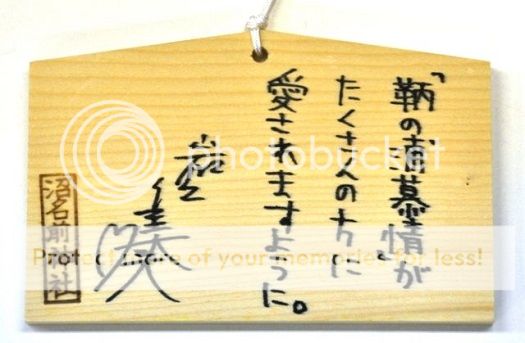 「鞆の浦慕情」が
たくさんの方に
愛されますように。
沼名前神社
photobucket
Protect more of your memories for less!